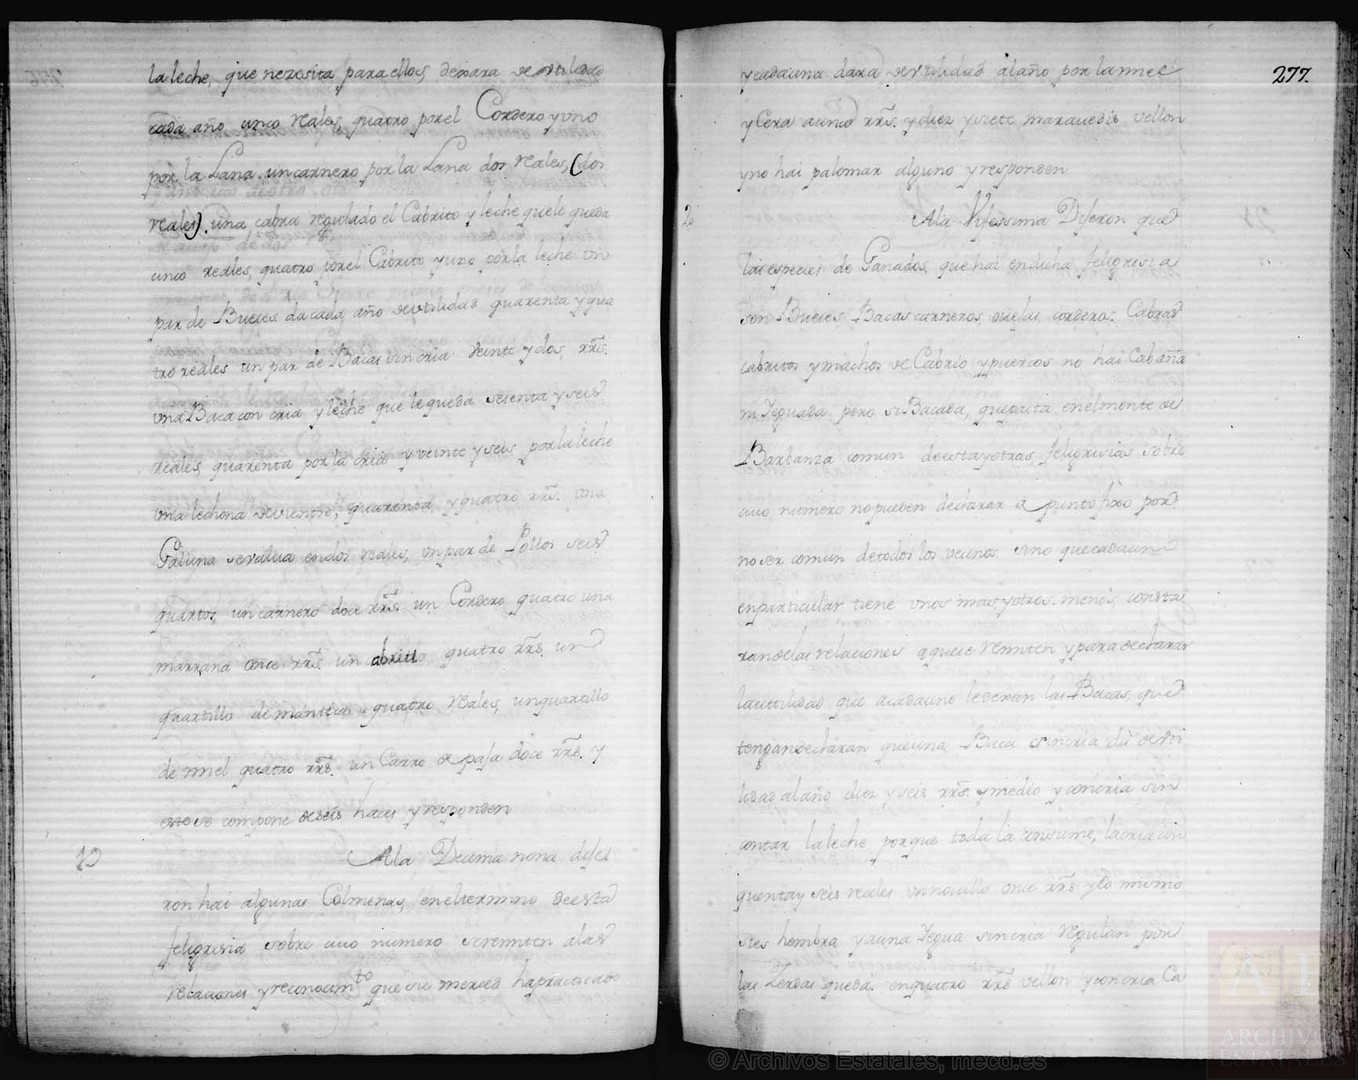 la leche, que nezesita para ellos dexara de utilidad
cada año cinco reales, quatro por el Cordero y uno
por la Lana. un carnero por la Lana dos reales, (dos
reales). una cabra regulado el Cabrito y leche que le queda
cinco reales, quatro por el Cabrito y uno por la leche. Un
par de Bueies da cada año de utilidad quarenta y qua
tro reales un par de Bacas sin cria veinte y dos, rrs.
una Baca con cria y leche que le queda sesenta y seis
reales, quarenta por la cria y veinte y seis por la leche
una lechona de vientre, quarenta y quatro rrs. una
Gallina se valua en dos reales, un par de Pollos seis
quartos, un carnero doce rrs. un Cordero quatro una
marrana once rrs. un abritt quatro rrs. un
quartillo de manteca quatro reales, un quartillo
de miel quatro rrs. un Carro de paja doce rrs. y
este se compone de seis haces y responden
19
A la Decima nona dijer
ron hai algunas Colmenas, en el termino de esta
feligresia sobre cuio numero se remiten a las
relaciones y reconocimto que su merced ha practicado
277.
y cada una dara de utilidad al año por la miel
y Cera a cinco rrs. y diez y siete maravedis vellon
y no hai palomar alguno y responden
2
A la Vijessima Dijeron que
las especies de Ganados, que hai en dicha feligresia
son Bueies Bacas carneros, ovejas, corderos, Cabras
cabritos y machos de Cabrio y puercos no hai Cabaña
ni Yeguada pero si Bacada, que pasta en el monte de
Barbanza comun de esta y otras, feligresias sobre
cuio numero no pueden declarar a punto fixo por
no ser comun de todos los vecinos, sino que cada un
en particular tiene unos mas y otros menos, consta
ran de las relaciones a que se remiten y para declarar
la utilidad que a cada uno le deran las Bacas, que
tengan declaran que una Baca sin cria da de uti
lidad al año diez y seis rrs. y medio y con cria sin
contar la leche porque toda la consume, la cria cin
quenta y seis reales un novillo once rrs y lo mismo
si es hembra y a una Yegua sin cria regulan por
las Zerdas queda. en quatro rrs vellon y con cria Ca
© Archivos Estatales, mecd.es
ARCHIVOS
ESTATALES